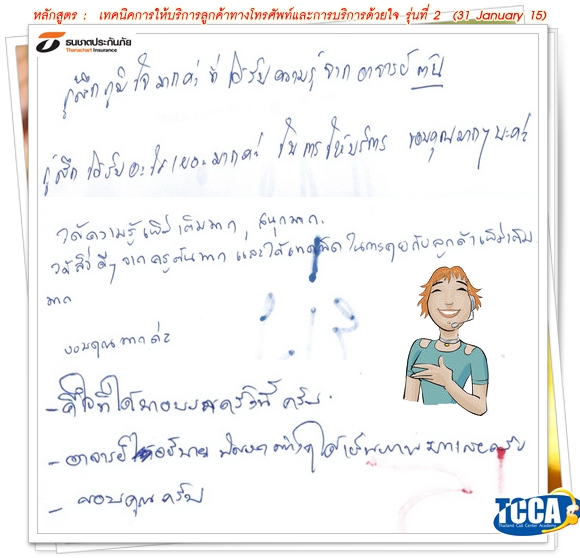 หลักสูตร : เทคนิคการให้บริการลูกค้าทางโทรศัพท์และการบริการด้วยใจ รุ่นที่ 2 (31 January 15)
ธนชาตประกันภัย
Thanachart Insurance
รู้สึกภูมิใจมากค่ะ ที่ได้รับความรู้จากอาจารย์
รู้สึกได้รับอะไรเยอะมากค่ะ ในการให้บริการ ขอบคุณมากๆนะค่ะ
ได้ความรู้เพิ่มเติมมาก, สนุกมาก.
ได้สิ่งดีๆจากครูต้นมาก และได้เทคนิคในการคุยกับลูกค้าเพิ่มเติม
มาก
ขอบคุณมากค่ะ
- ดีใจที่ได้มาอบรมครั้งนี้ ครับ
- อาจารย์ได้อธิบาย ได้เห็นภาพมากเลยครับ
- ขอบคุณครับ
TCCA
Thailand Call Center Academy